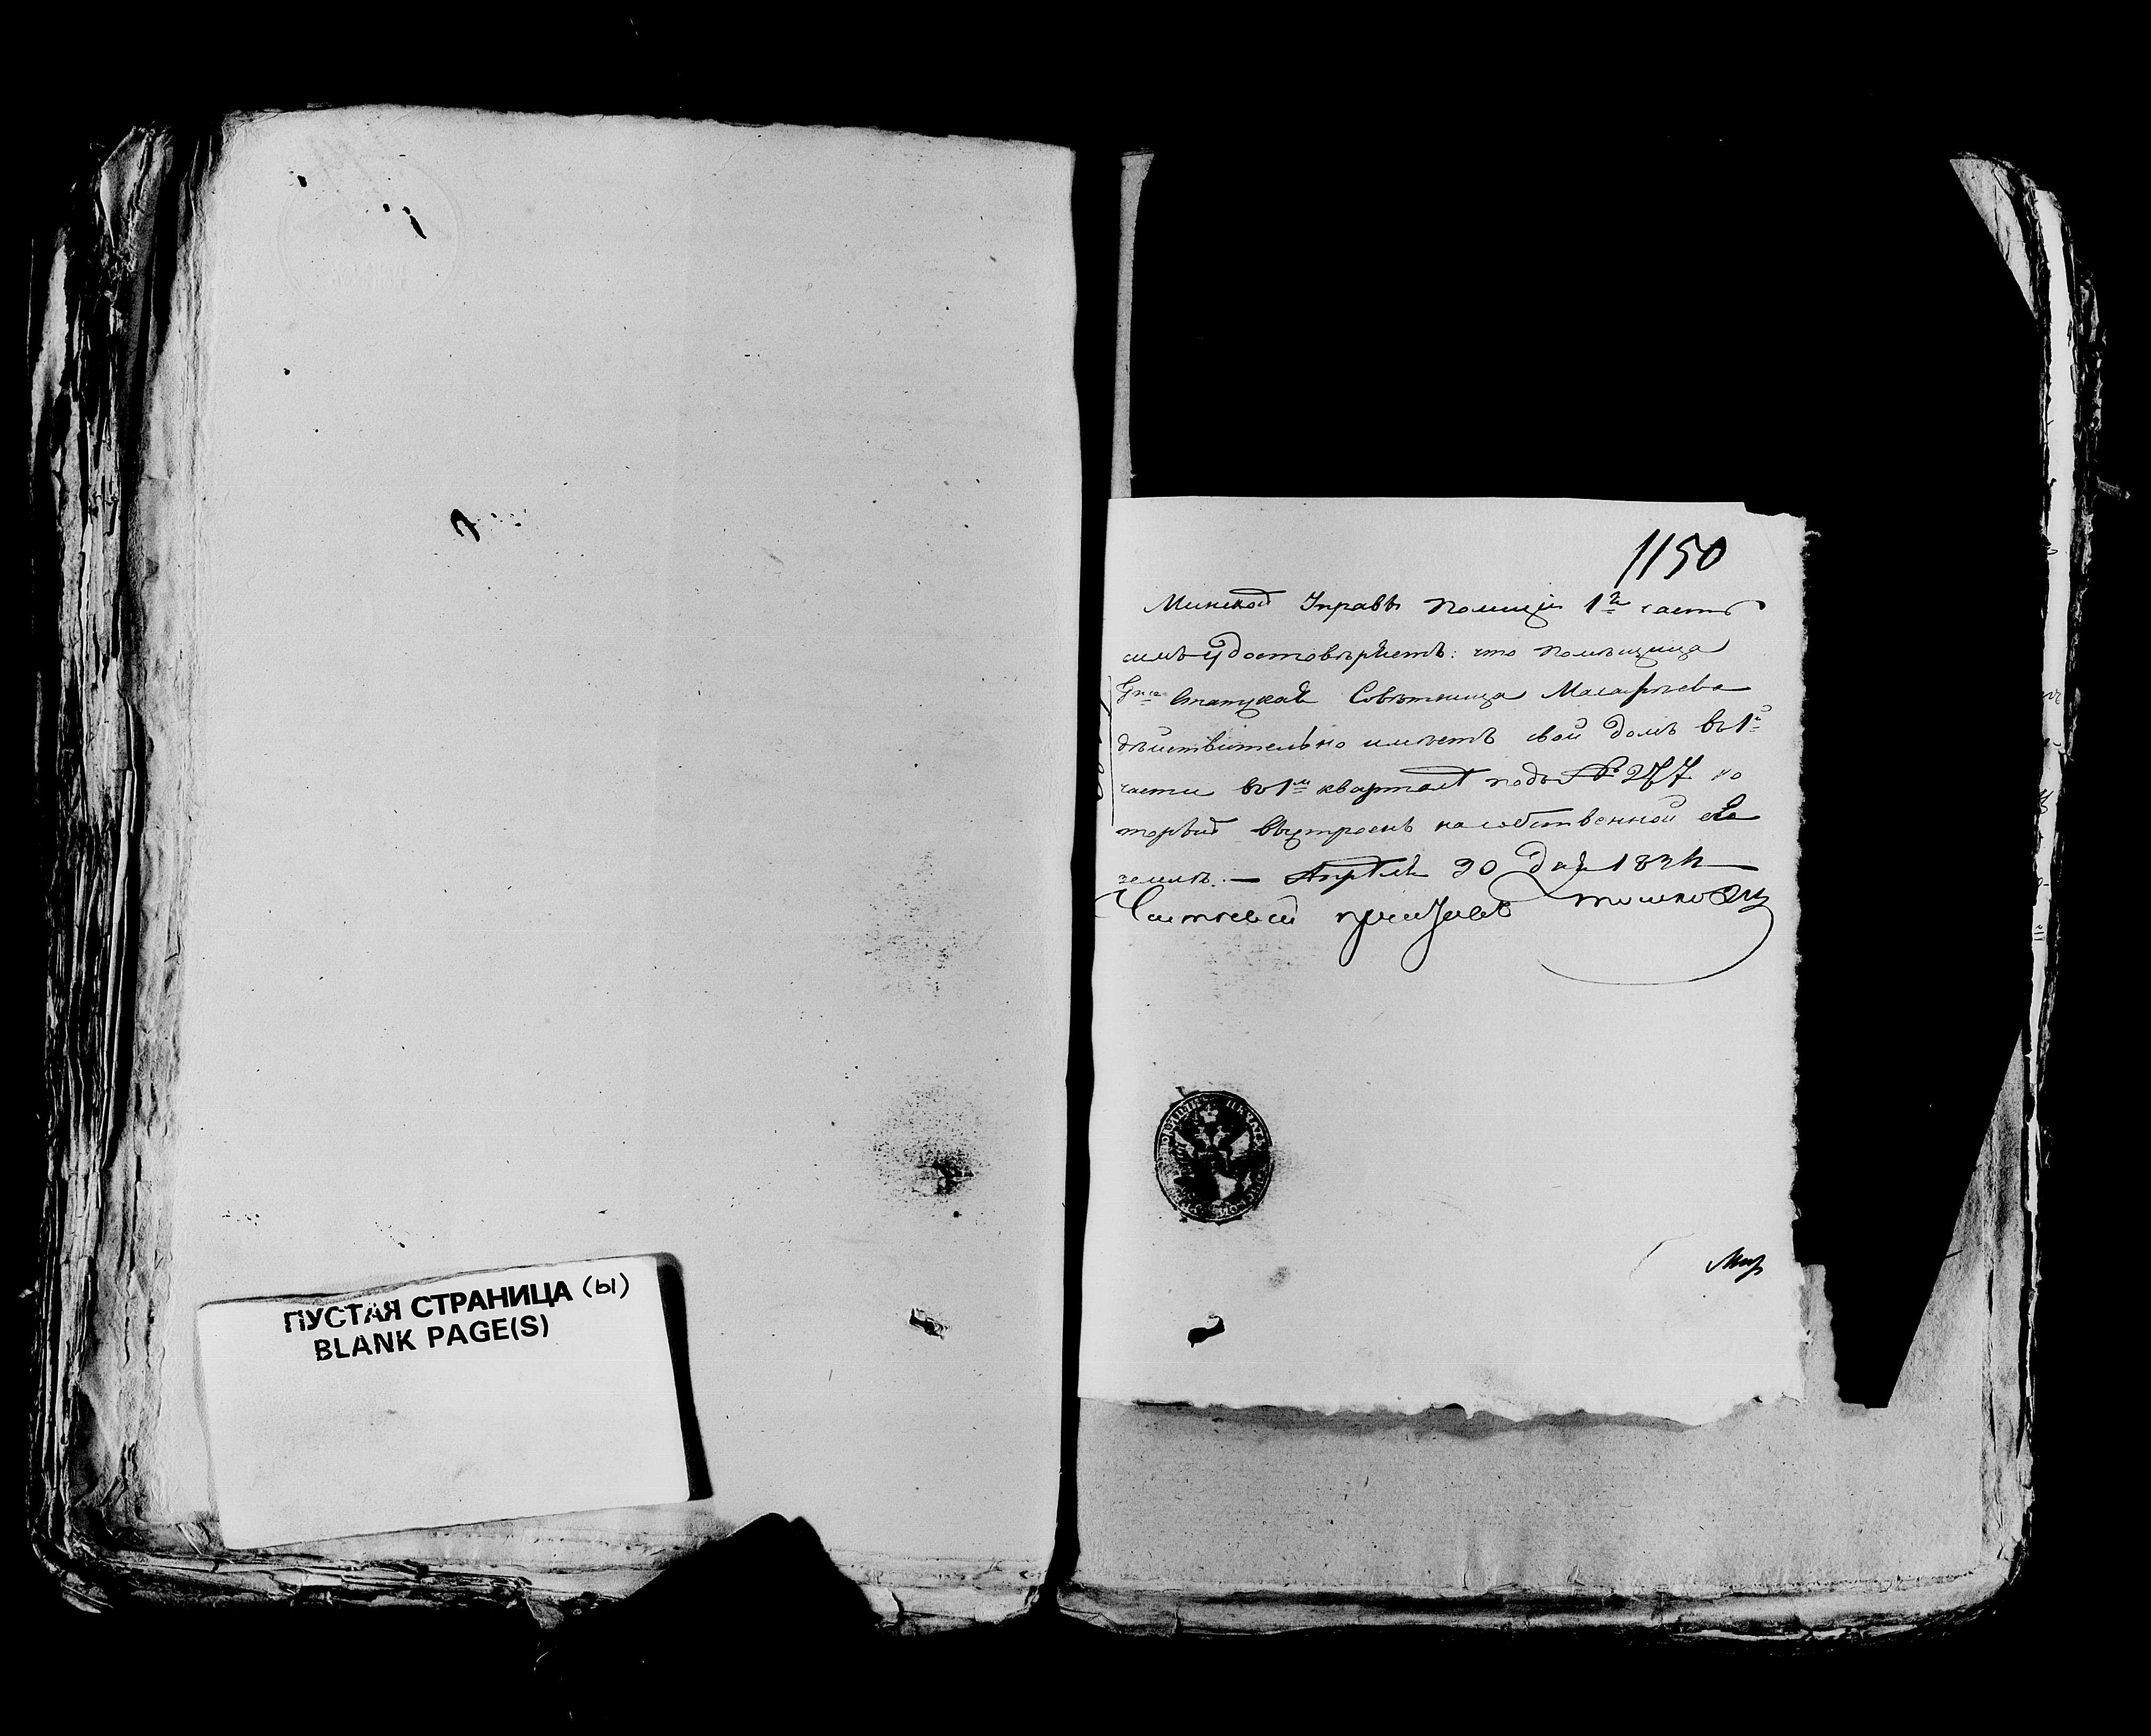 ПУСТАЯ СТРАНИЦА (Ы)
BLANK PAGE(S)
1150
Минской Управы Полиции 1й часть
симъ удостовѣряетъ: что помѣщица
Статская Совѣтница
дѣйствительно имѣетъ свой домъ въ 1й
части въ 1м кварталѣ подъ № 277 ко
торый выстроенъ на собственной ея
землѣ. — Апрѣля 30 дня
Частный приставъ